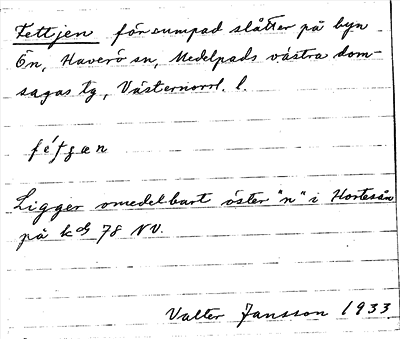 Fettjen försumpad slåtter på byn
Ön, Haverö sn, Medelpads västra dom-
sagas tg, Västernorrl. l.
Ligger omedelbart öster "n" i Hortesån
på kbl 78 NV.
Valter Jansson 1933